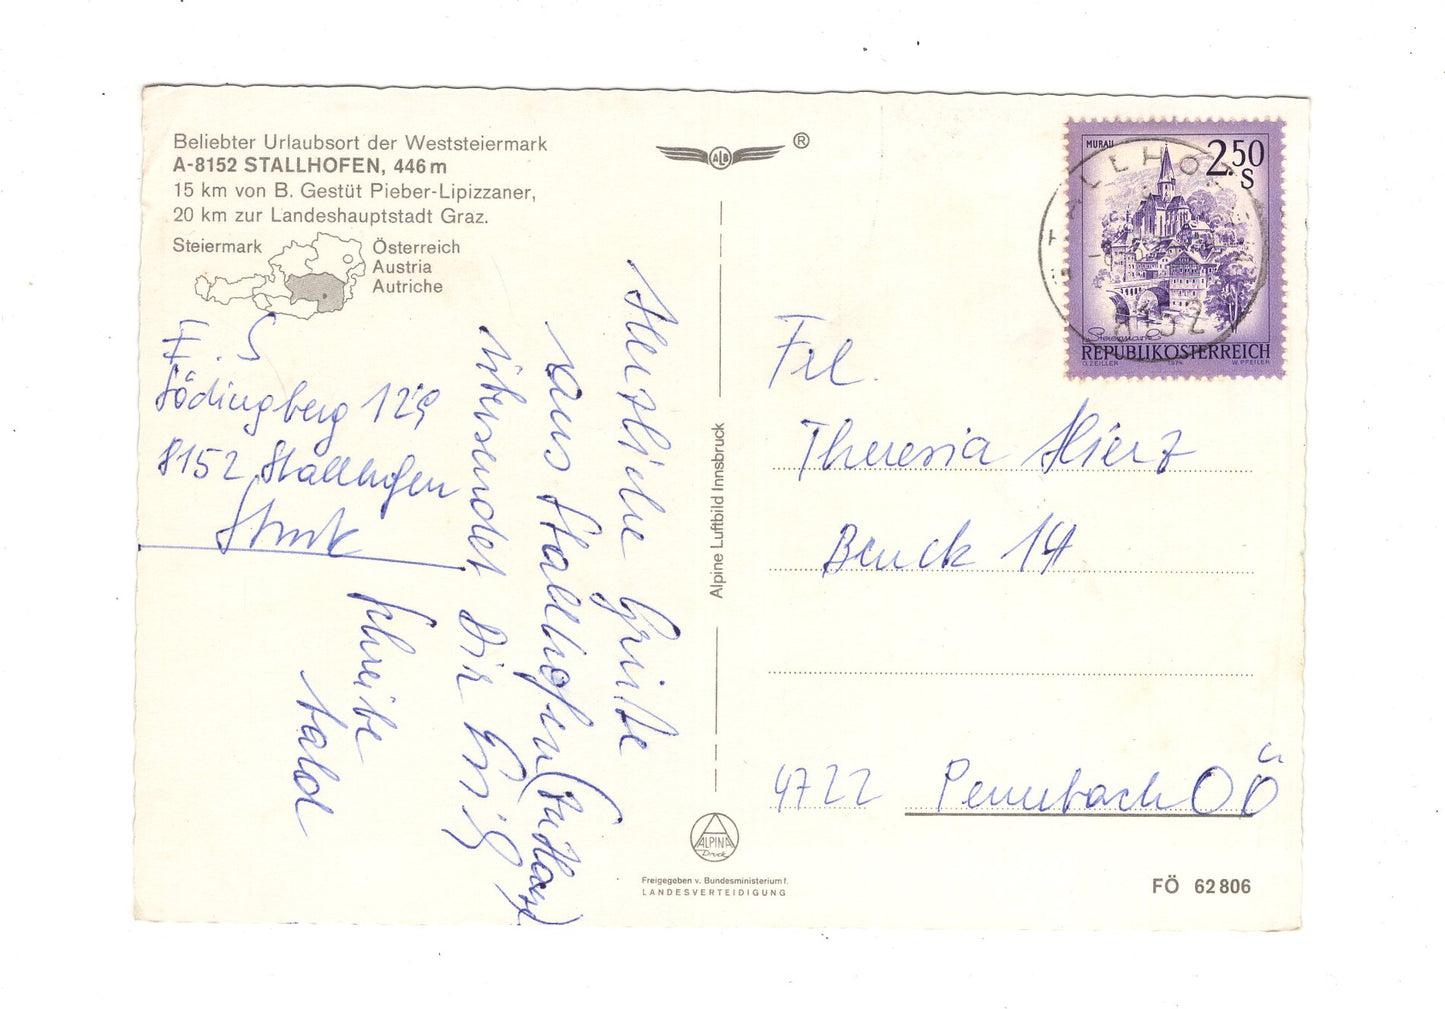 Beliebter Urlaubsort der Weststeiermark
A-8152 STALLHOFEN, 446 m
15 km von B. Gestüt Pieber-Lipizzaner,
20 km zur Landeshauptstadt Graz.
Steiermark
Österreich
Austria
Autriche
F. S
Södingberg 129
8152 Stallhofen
Herzliche Grüße
aus Stallhofen (
übersendet Dir
Schreibe
bald
Alpine Luftbild Innsbruck
ALB
®
ALPINA
Druck
Freigegeben v. Bundesministerium f.
LANDESVERTEIDIGUNG
MURAU
2.50
S
Steiermark
REPUBLIK ÖSTERREICH
O. ZEILER 1974 W. PFEILER
STALLHOF
8152
Frl.
Theresia Hierz
Bruck 14
4722 Peuerbach OÖ
FÖ 62 806